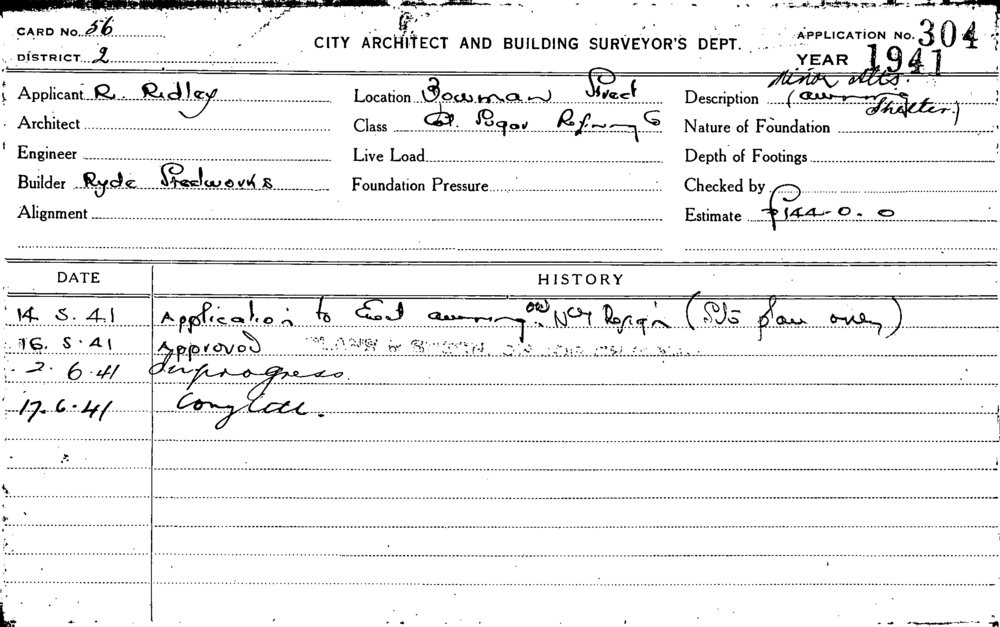 CARD No. 56
DISTRICT 2
CITY ARCHITECT AND BUILDING SURVEYOR'S DEPT.
APPLICATION No. 304
YEAR 1941
Applicant R. Ridley
Location Bowman Street
Description Minor Alts. (awning Shelter)
Architect
Class Col. Sugar Refining Co
Nature of Foundation
Engineer
Live Load
Depth of Footings
Builder Ryde Steelworks
Foundation Pressure
Checked by
Alignment
Estimate £144-0.0
DATE HISTORY
14.5.41 Application to Erect awning (Site plan only)
16.5.41 Approved PLANS &
2.6.41 In progress
17.6.41 Complete.